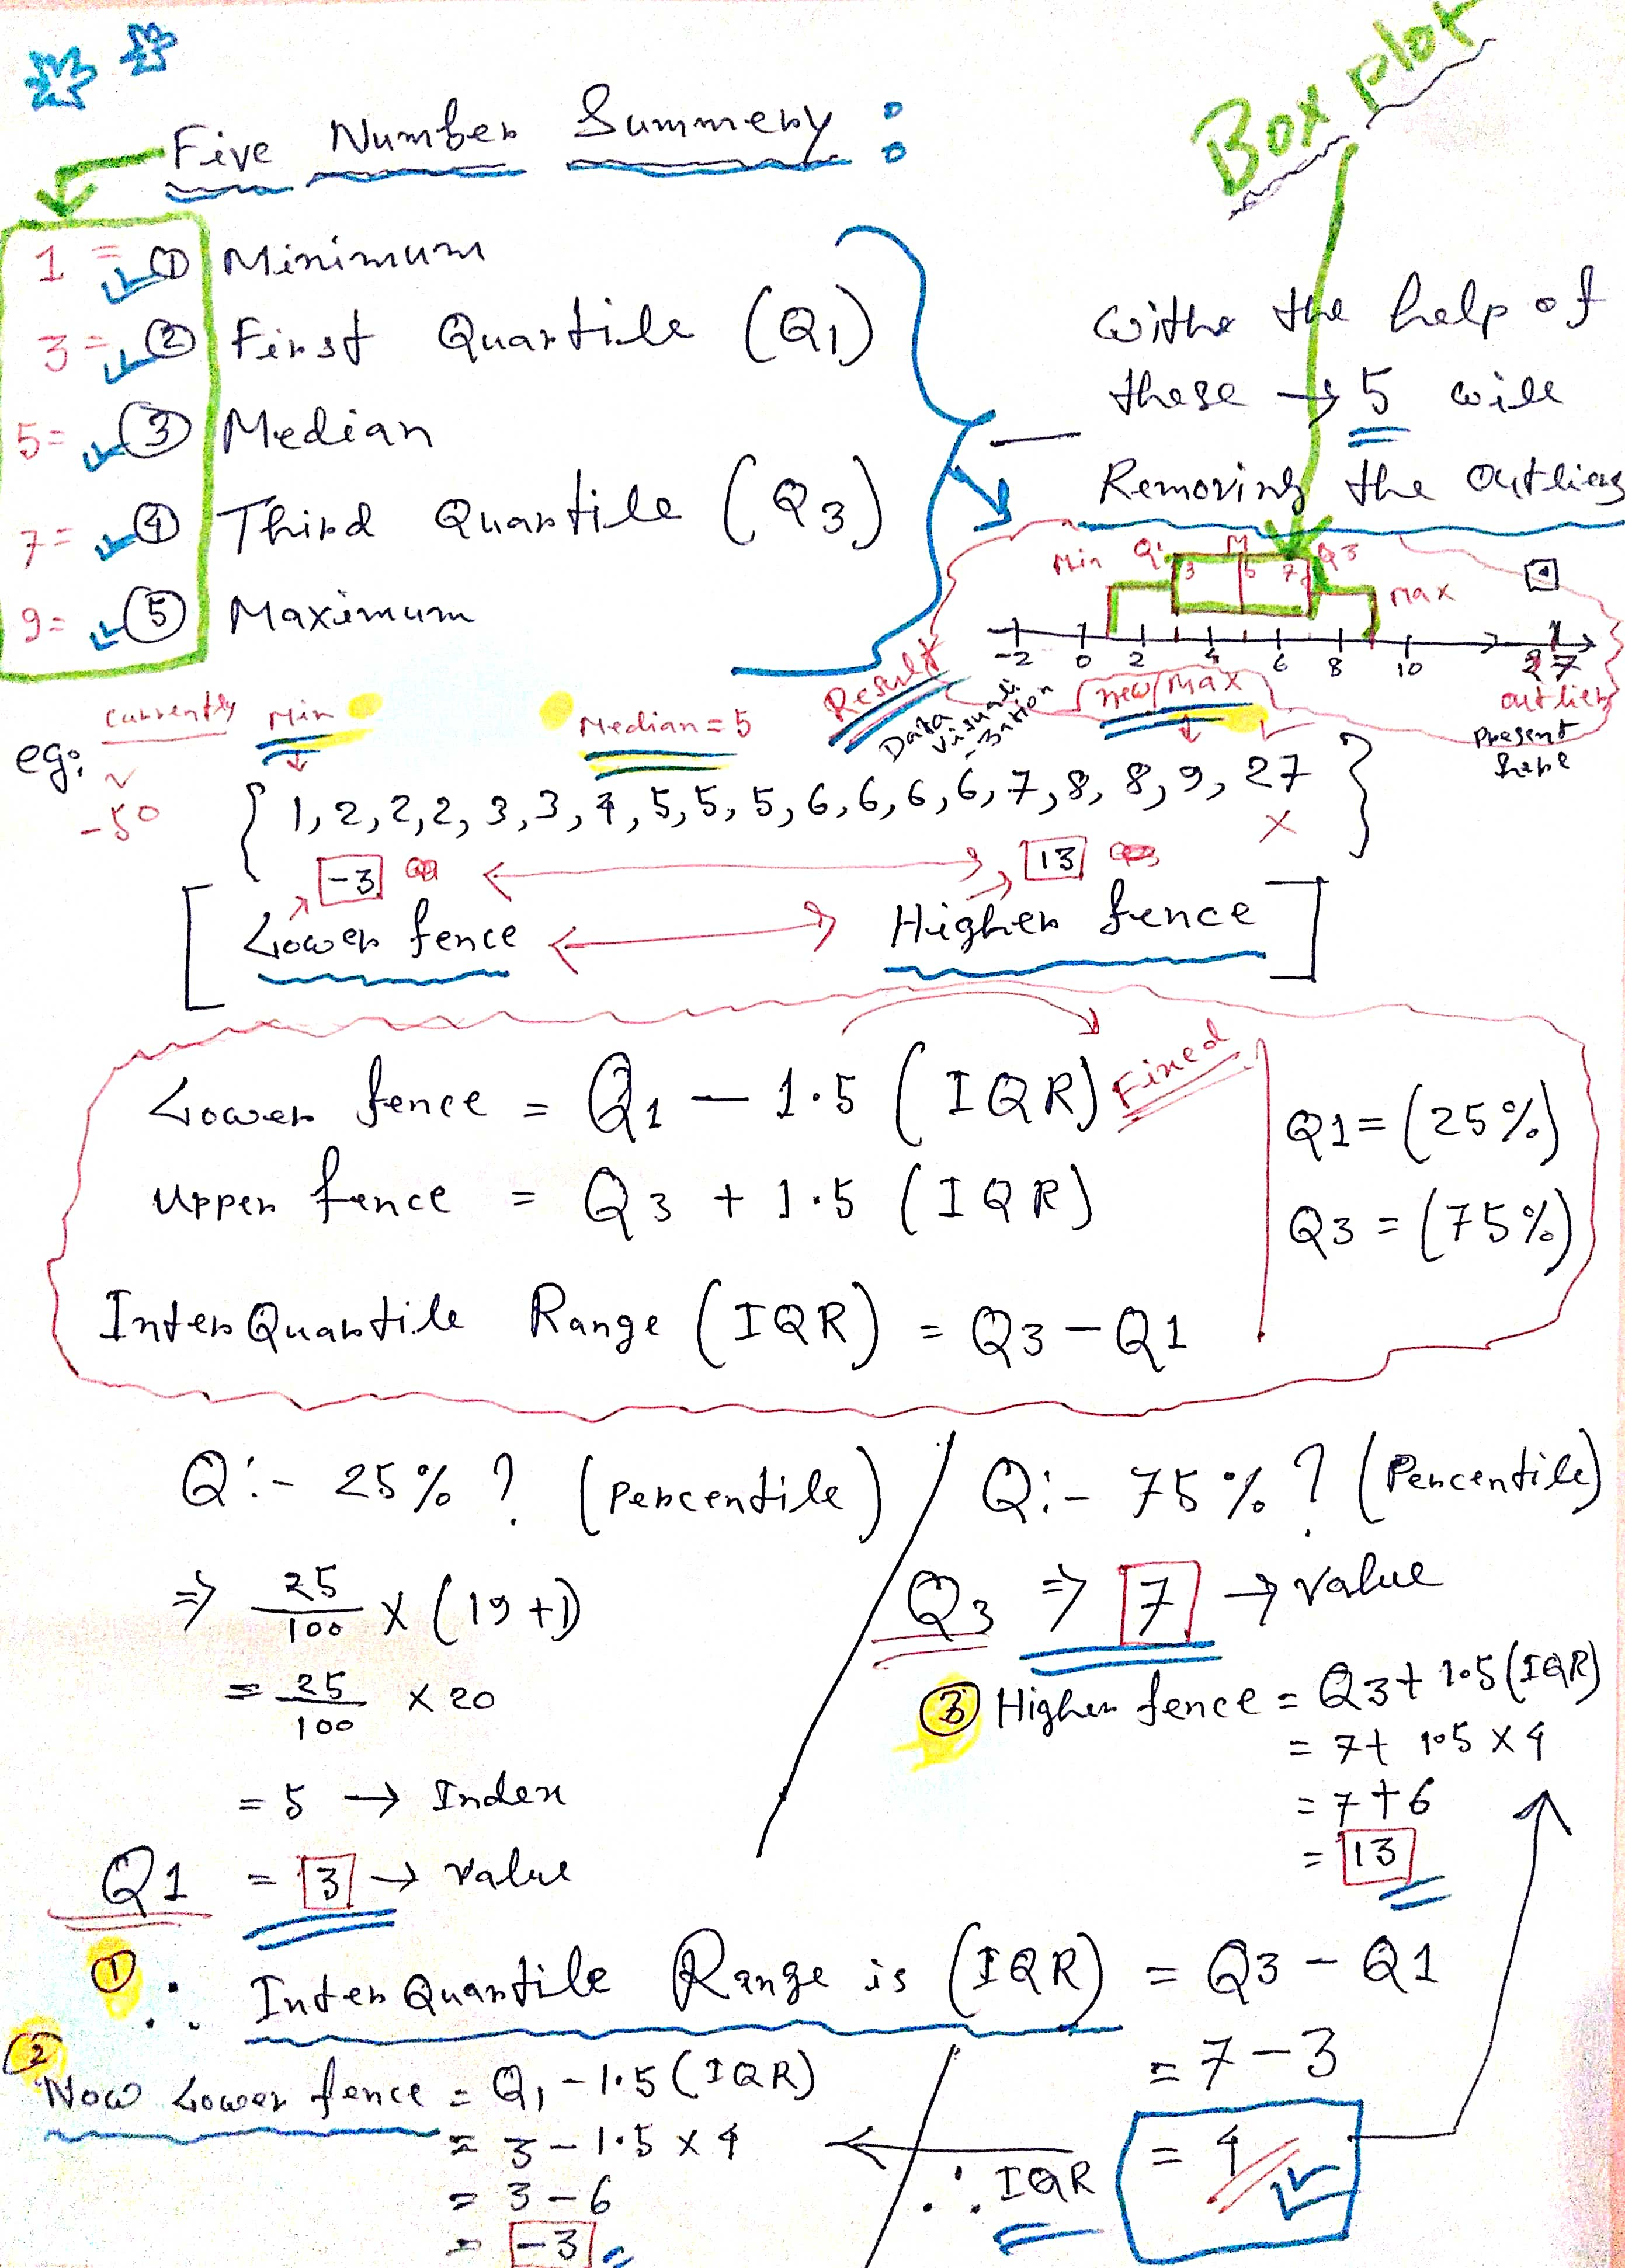 Box Plot
Five Number Summery :
1 = ① Minimum
3 = ② First Quartile (Q1)
5 = ③ Median
7 = ④ Third Quartile (Q3)
9 = ⑤ Maximum
withe the help of
these → 5 will
Removing the outliers
Min Q1 M Q3
3 5 7
Max
-2 0 2 4 6 8 10 27
outlier
Present here
Result
Data visualization
new max
eg: currently Min Median = 5
-50
{ 1, 2, 2, 2, 3, 3, 4, 5, 5, 5, 6, 6, 6, 6, 7, 8, 8, 9, 27 }
x
-3 13
[ Lower fence ↔ Higher fence ]
Lower fence = Q1 - 1.5 (IQR) Fixed
Upper fence = Q3 + 1.5 (IQR)
Inter Quartile Range (IQR) = Q3 - Q1
Q1 = (25%)
Q3 = (75%)
Q:- 25% ? (Percentile)
⇒ 25/100 x (19+1)
= 25/100 x 20
= 5 → Index
Q1 = 3 → value
Q:- 75% ? (Percentile)
Q3 ⇒ 7 → value
③ Higher fence = Q3 + 1.5 (IQR)
= 7 + 1.5 x 4
= 7 + 6
= 13
① ∴ Inter Quartile Range is (IQR) = Q3 - Q1
= 7 - 3
∴ IQR = 4
② Now Lower fence = Q1 - 1.5 (IQR)
= 3 - 1.5 x 4
= 3 - 6
= -3